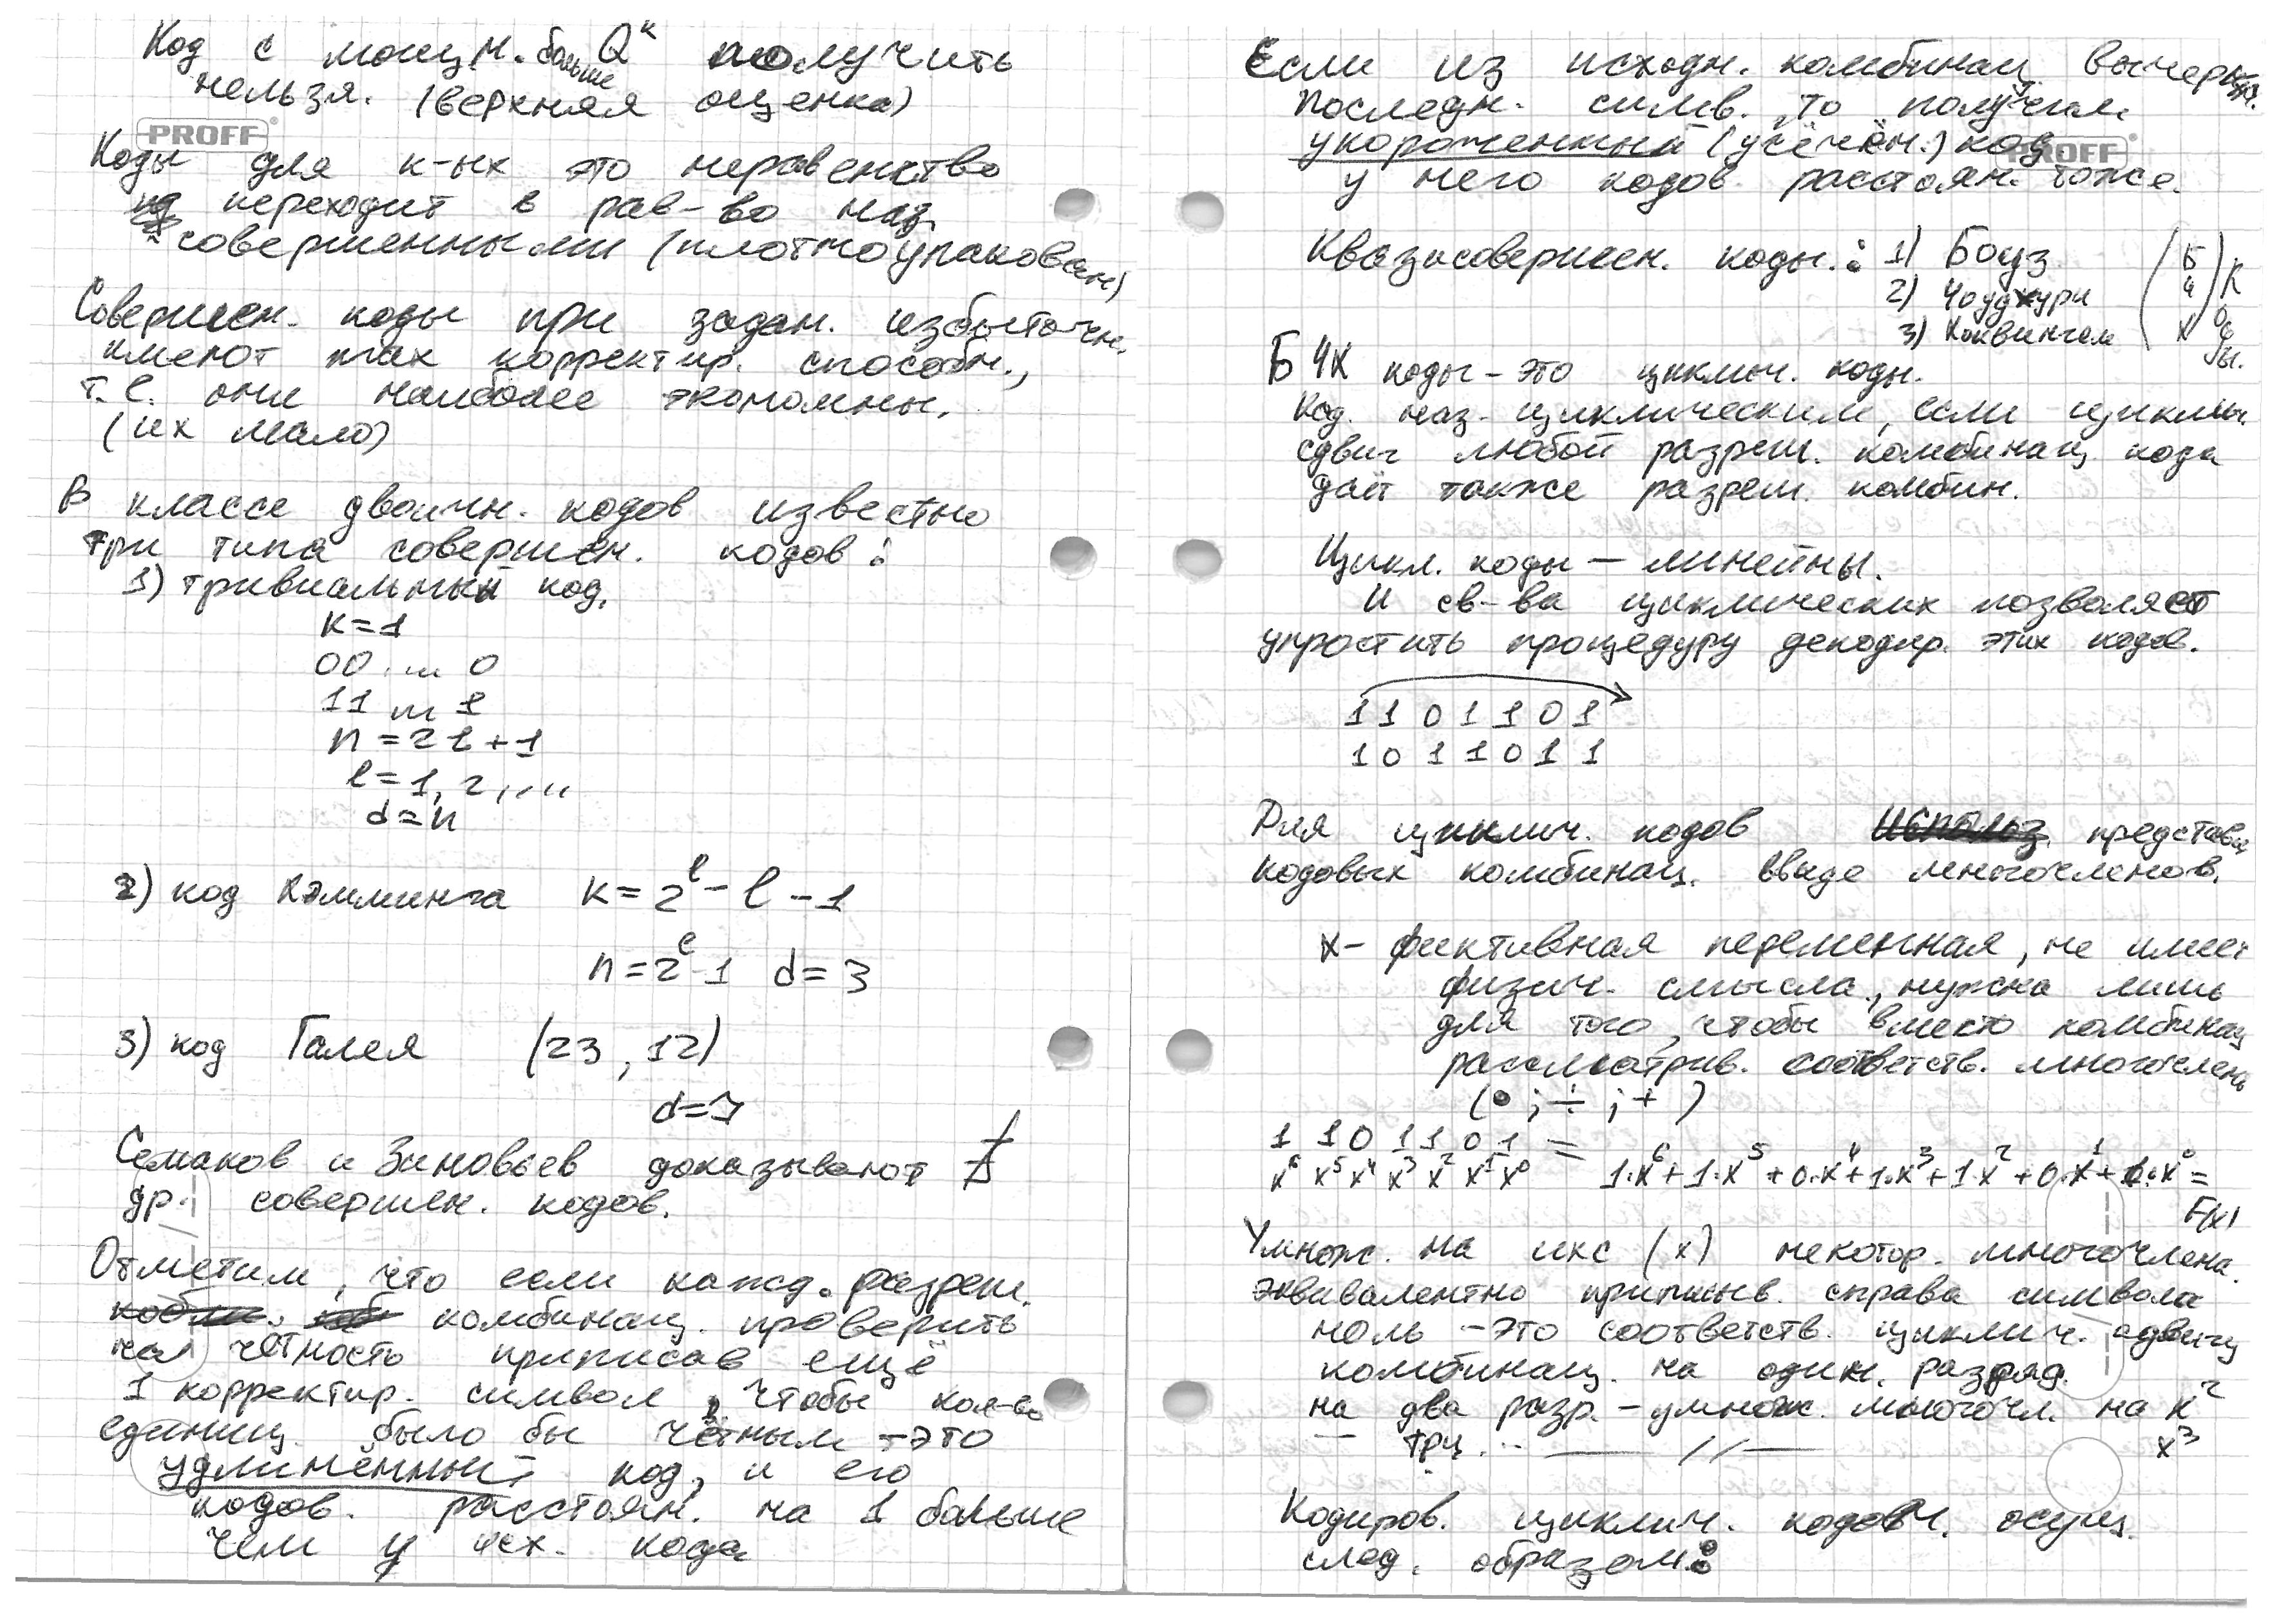 Код с мощн. больше Q^k получить
нельзя. (верхняя оценка)
PROFF
Коды для к-ых это неравенство
переходит в рав-во наз.
совершенными (плотноупакован)
Совершен. коды при задан. избыточн.
имеют max корректир. способн.,
т.е. они наиболее экономны.
(их мало)
В классе двоичн. кодов известно
три типа совершен. кодов:
1) тривиальный код.
k=1
00 ... 0
11 ... 1
n=2l+1
l=1, 2, ...
d=n
2) код Хэмминга k=2^l-l-1
n=2^l-1 d=3
3) код Галея (23, 12)
d=7
Семаков и Зиновьев доказывают ∄
др. совершен. кодов.
Отметим, что если кажд. разреш.
комбинац. проверить
на чётность приписав ещё
1 корректир. символ, чтобы кол-во
единиц было бы чётным - это
удлинённый код, и его
кодов. расстоян. на 1 больше
чем у исх. кода
Если из исходн. комбинац. вычеркн.
последн. симв., то получим
укороченный (усечён.) код
PROFF
у него кодов. расстоян. тоже.
Квазисовершен. коды: 1) Боуз
2) Чоудхури
3) Хоквингем
(Б Ч Х) коды.
БЧХ коды - это циклич. коды.
Код наз. циклическим, если циклич.
сдвиг любой разреш. комбинац. кода
даёт также разреш. комбин.
Цикл. коды - линейны.
И св-ва циклических позволяет
упростить процедуру декодир. этих кодов.
1 1 0 1 1 0 1
1 0 1 1 0 1 1
Для циклич. кодов представ.
кодовых комбинац. ввиде многочленов.
x - фиктивная переменная, не имеет
физич. смысла, нужна лишь
для того, чтобы вместо комбинац
рассматрив. соответств. многочлены
(• ; ÷ ; +)
1 1 0 1 1 0 1 =
x^6 x^5 x^4 x^3 x^2 x^1 x^0 1·x^6+1·x^5+0·x^4+1·x^3+1·x^2+0·x^1+1·x^0=
F(x)
Умнож. на икс (x) некотор. многочлена
эквивалентно приписыв. справа символа
ноль - это соответств. циклич. сдвигу
комбинац. на один. разряд.
на два разр. - умнож. многочл. на x^2
— три — // — x^3
Кодиров. циклич. кодов осущ.
след. образом: